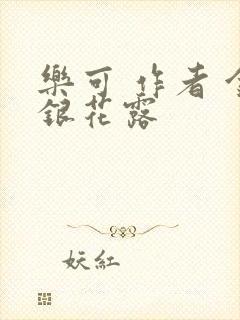 樂可 作者 金
銀花露
妖紅